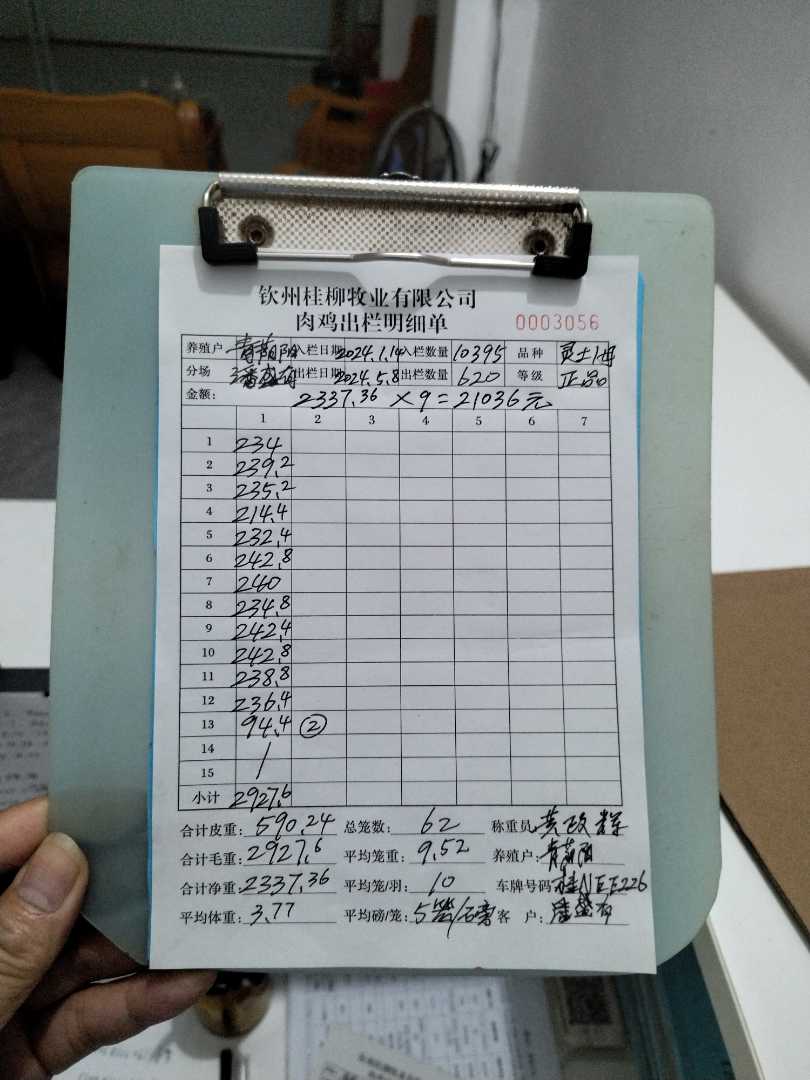 钦州桂柳牧业有限公司
肉鸡出栏明细单 0003056
养殖户 入栏日期 2024.1.14 入栏数量 10395 品种 灵士1号
分场 出栏日期 2024.5.8 出栏数量 620 等级 正品
金额: 2337.36 × 9 = 21036元
1 2 3 4 5 6 7
1 234
2 239.2
3 235.2
4 214.4
5 232.4
6 242.8
7 240
8 234.8
9 242.4
10 242.8
11 238.8
12 236.4
13 94.4 ②
14 /
15
小计 2927.6
合计皮重: 590.24 总笼数: 62 称重员: 黄政辉
合计毛重: 2927.6 平均笼重: 9.52 养殖户:
合计净重: 2337.36 平均笼/羽: 10 车牌号码 桂NEE226
平均体重: 3.77 平均磅/笼: 5 客 户: 潘盛有